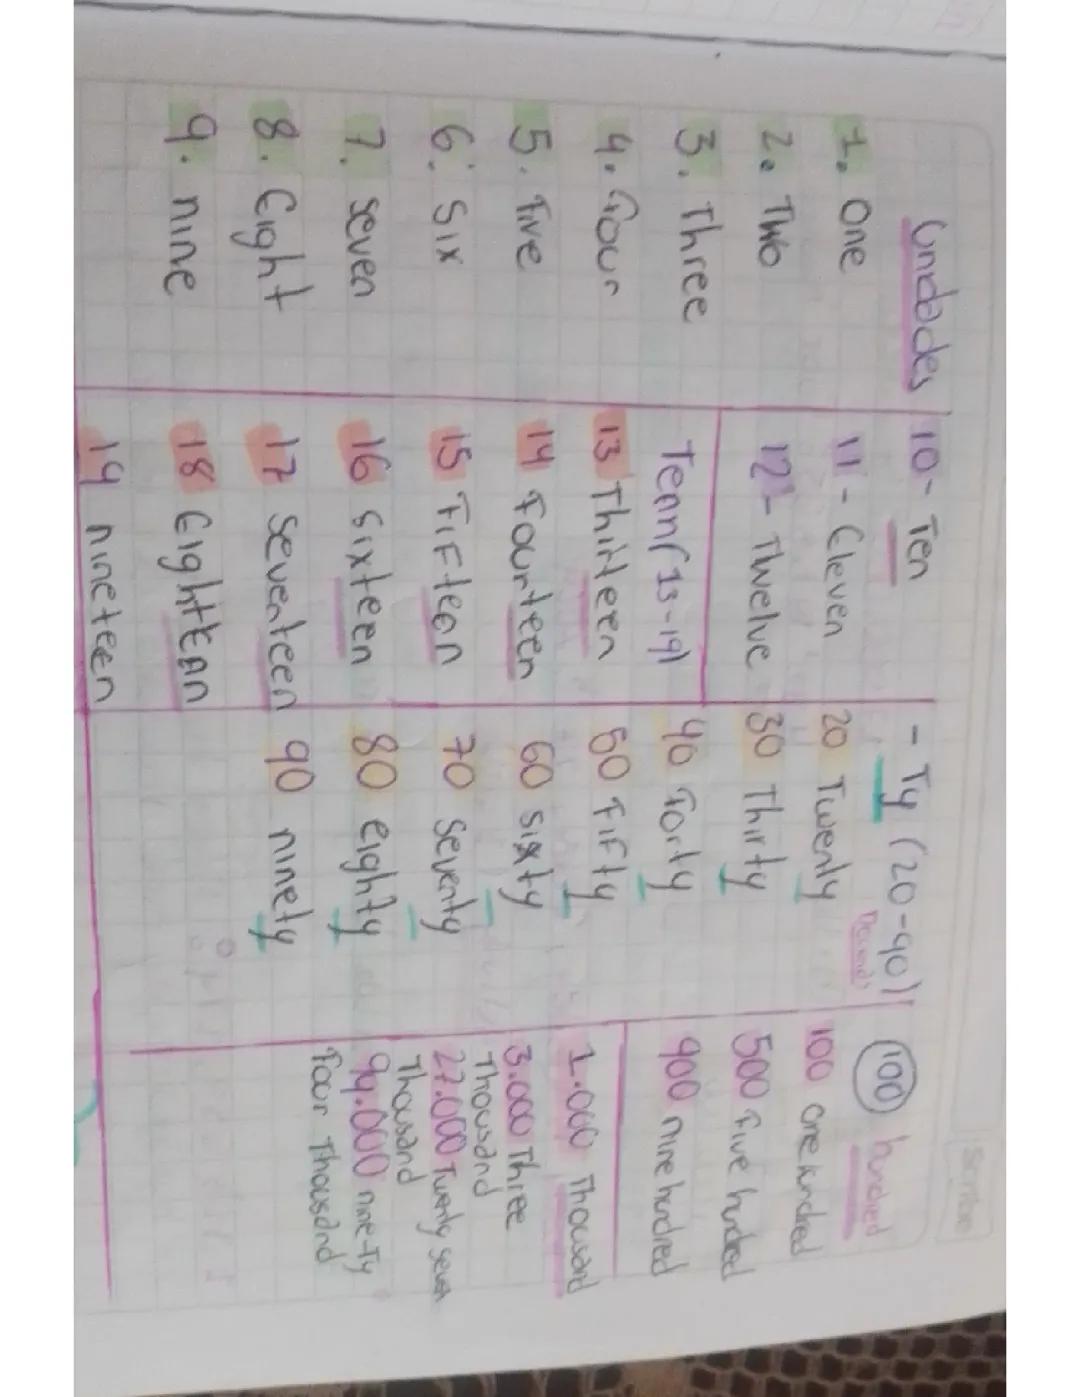 Scribe
Unidades
1. One
2. Two
3. Three
4. Four
5. Five
6. Six
7. Seven
8. Eight
9. nine
10- Ten
11- Eleven
12- Twelve
Teen(13-19)
13 Thirteen
14 Fourteen
15 FiFteen
16 sixteen
17 seventeen
18 Eighteen
19 nineteen
- Ty (20-90)
20 Twenty
30 Thirty
40 Forty
50 FiFty
60 sixty
70 seventy
80 eighty
90 ninety
100 hundred
100 one hundred
500 Five hundred
900 nine hundred
1.000 Thousand
3.000 Three
Thousand
27.000 Twenty seven
Thousand
94.000 nine-Ty
Four Thousand